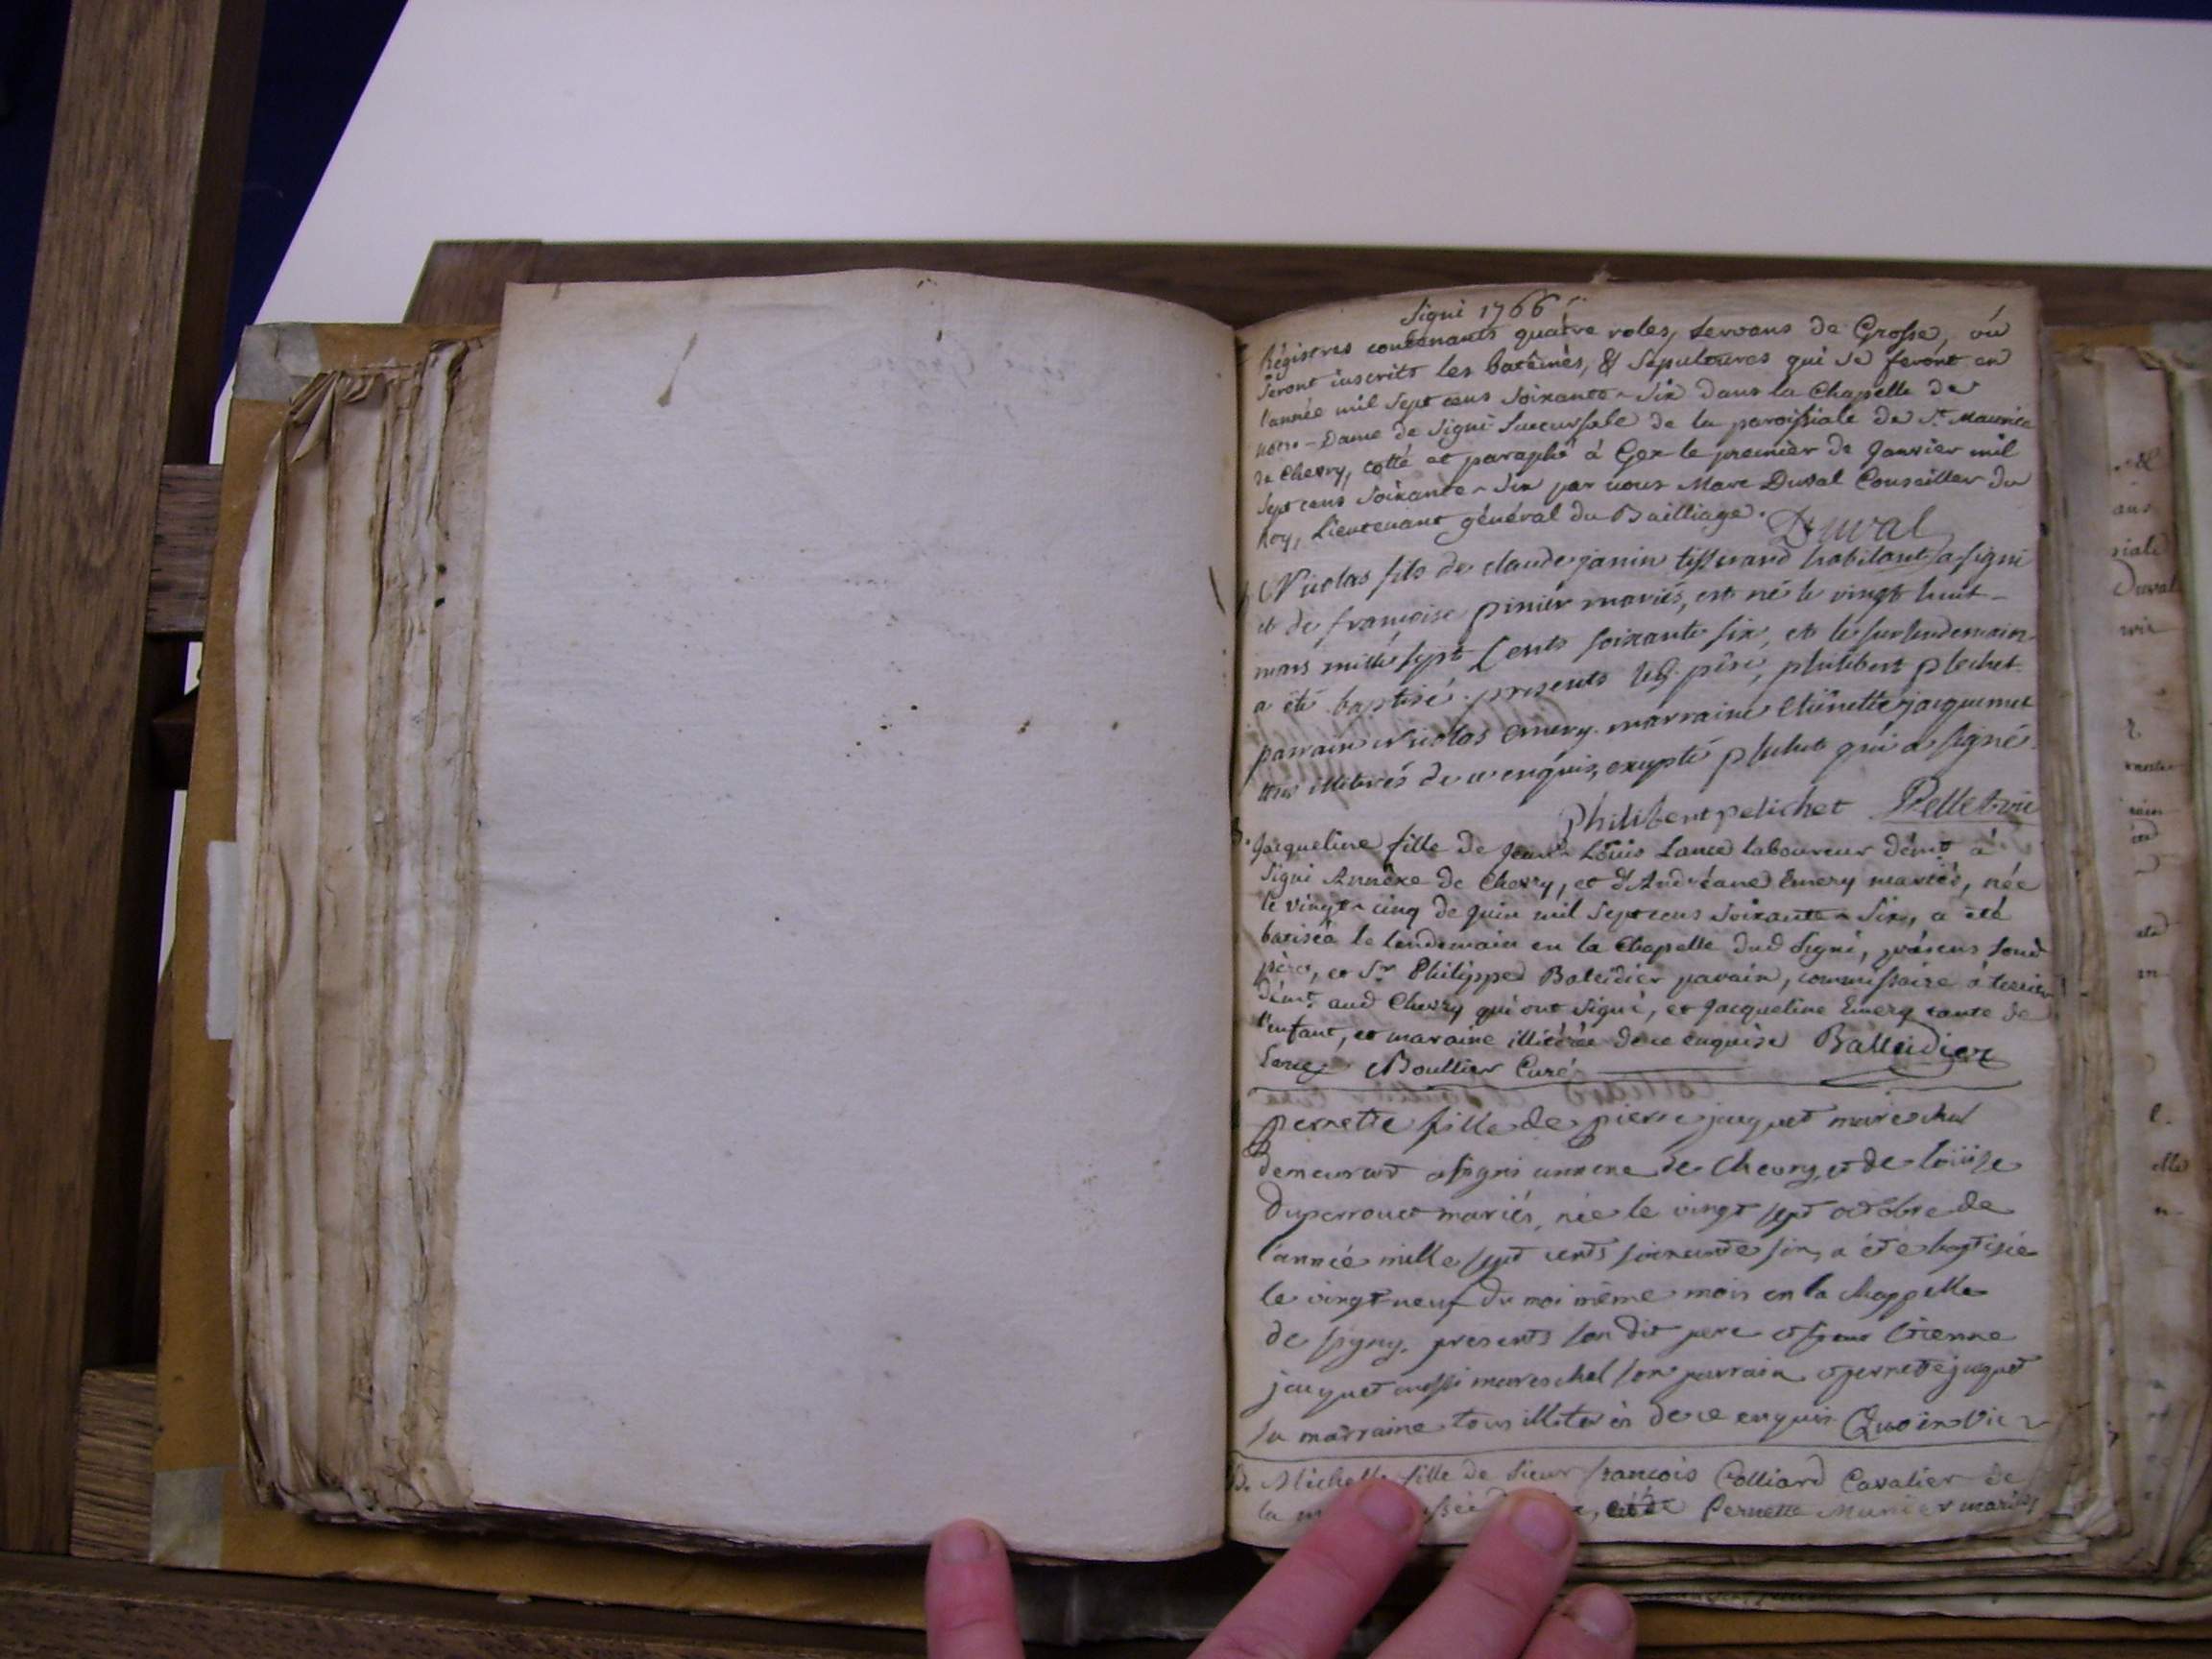 Signi 1766
Régistres contenants quatre roles, servans de Grosse, où
seront inscrits les batêmes, & Sepultures qui se feront en
l'année mil sept cens soixante-six dans la Chapelle de
notre-Dame de Signi Succursale de la paroissiale de St. Maurice
de Chevry, cotté et paraphé à Gex le premier de Janvier mil
sept cens soixante-six par nous Marc Duval Conseiller du
Roy, Lieutenant général du Bailliage. Duval
Nicolas fils de claude janin tisserand habitant a signi
et de françoise pinier mariés, est né le vingt huit
mars mille sept cents soixante six, et le surlendemain
a été baptisé. presents led. père, philibert plechet
parrain Nicolas emery. marraine etiennette jacquemet
tous illiterés de ce enquis, excepté plechet qui a signé.
Philibert pelichet Pelletvic
B. Jacqueline fille de Jean Louis Lance laboureur démt à
Signi Annêxe de Chevry, et d'Andréane Emery mariés, née
le vingt-cinq de Juin mil sept cens soixante-six, a été
batisée le lendemain en la Chapelle dud Signi, présens sond
père, et Sr Philippe Baleidier parain, commissaire à terrier
démt aud Chevry qui ont signé, et Jacqueline Emery tante de
l'enfant, et maraine illitérée de ce enquise Balleidier
Boullier Curé
pernette fille de pierre jaquet mareschal
demeurant a signi annexe de Chevry, et de loüise
Duperrouet mariés, née le vingt sept octobre de
l'année mille sept cents soixante six, a été baptisée
le vingt neuf du moi même mois en la chappelle
de signy. presents son dit pere et Etienne
jacquet aussi mareschal son parrain et pernette jaquet
sa marraine tous illiterés de ce enquis
B. Michelle fille de Sieur françois Colliard Cavalier de
la Pernette Munier mariés